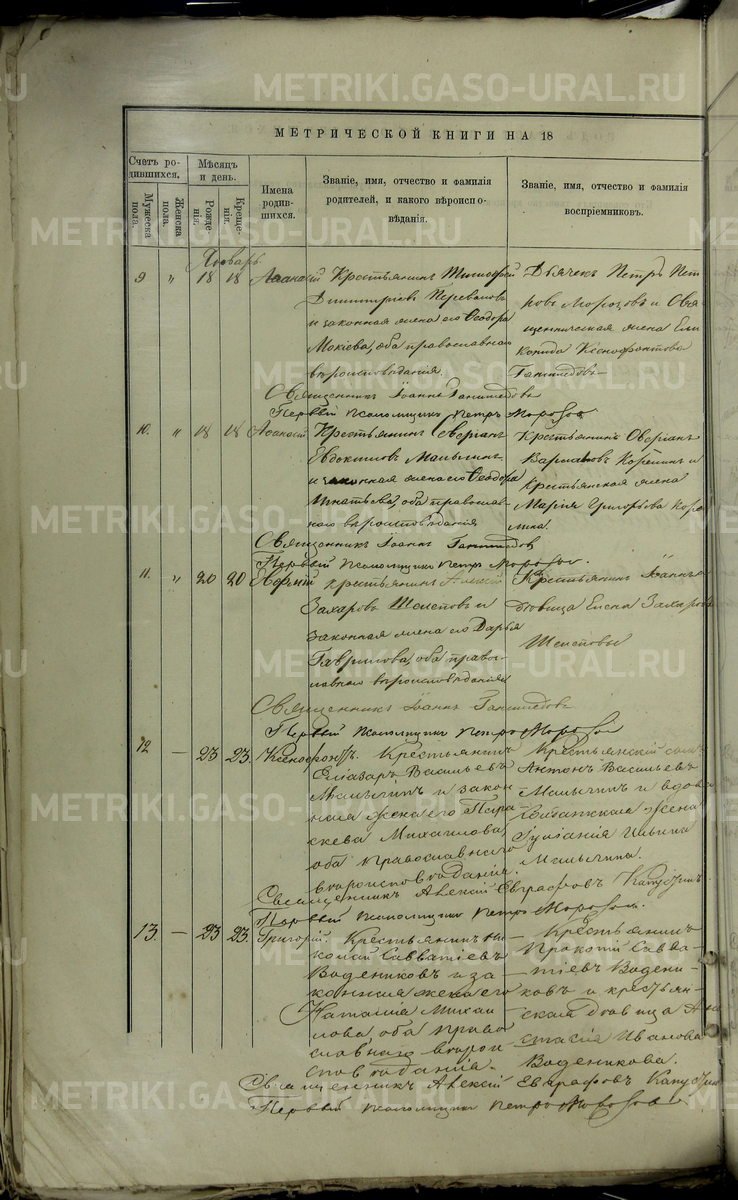 МЕТРИЧЕСКОЙ КНИГИ НА 18
Счетъ родившихся.
Мужеска пола.
Женска пола.
Мѣсяцъ и день.
Рожденія.
Крещенія.
Имена родившихся.
Званіе, имя, отчество и фамилія родителей, и какого вѣроисповѣданія.
Званіе, имя, отчество и фамилія воспріемниковъ.
Январь
9 „ 18 18 Аѳанасій
Крестьянинъ Тимофей
Димитріевъ Переваловъ
и законная жена его Ѳеодора
Мокіева, оба православнаго
вѣроисповѣданія.
Дьячекъ Петръ Пет
ровъ Морозовъ и Свя
щенническая жена
Ксенофонтова
Священникъ Іоаннъ
Первый псаломщикъ Петръ Морозовъ
10. „ 18 18 Аѳанасій
Крестьянинъ
Евдокимовъ Малыгинъ
и законная жена его Ѳеодора
Игнатьева, оба православ-
наго вѣроисповѣданія
Крестьянинъ
и
крестьянская жена
Марія Григорьева
Священникъ Іоаннъ
Первый псаломщикъ Петръ Морозовъ.
11. „ 20 20
крестьянинъ Алексій
Захаровъ Шестовъ и
законная жена его Дарья
Гаврилова, оба право-
славнаго вѣроисповѣданія
Крестьянинъ Іоаннъ
дѣвица Елена Захаровы
Шестовы
Священникъ Іоаннъ
Первый псаломщикъ Петръ Морозовъ
12 — 23 23. Ксенофонтъ.
Крестьянинъ
Елеазаръ Васильевъ
Малыгинъ и закон
ная жена его Пара
скева Михаилова
оба православнаго
вѣроисповѣданія.
Крестьянскій сынъ
Антонъ Васильевъ
Малыгинъ и вдова
жена
Іуліанія Ильина
Малыгина.
Священникъ Алексій Евграфовъ Капустинъ.
Первый псаломщикъ Петръ Морозовъ.
13. — 23 23. Григорій.
Крестьянинъ Ни
колай Савватіевъ
Водениковъ и за
конная жена его
Наталія Михаи
лова, оба право
славнаго вѣрои
сповѣданія.
Крестьянинъ
Прокопій Савва
тіевъ Водени
ковъ и крестьян
ская вдовица Ана
стасія Иванова
Воденикова.
Священникъ Алексій Евграфовъ Капустинъ
Первый псаломщикъ Петръ Морозовъ
METRIKI.GASO-URAL.RU